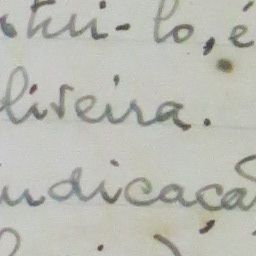 tui-lo, é
liveira.
indicaçã